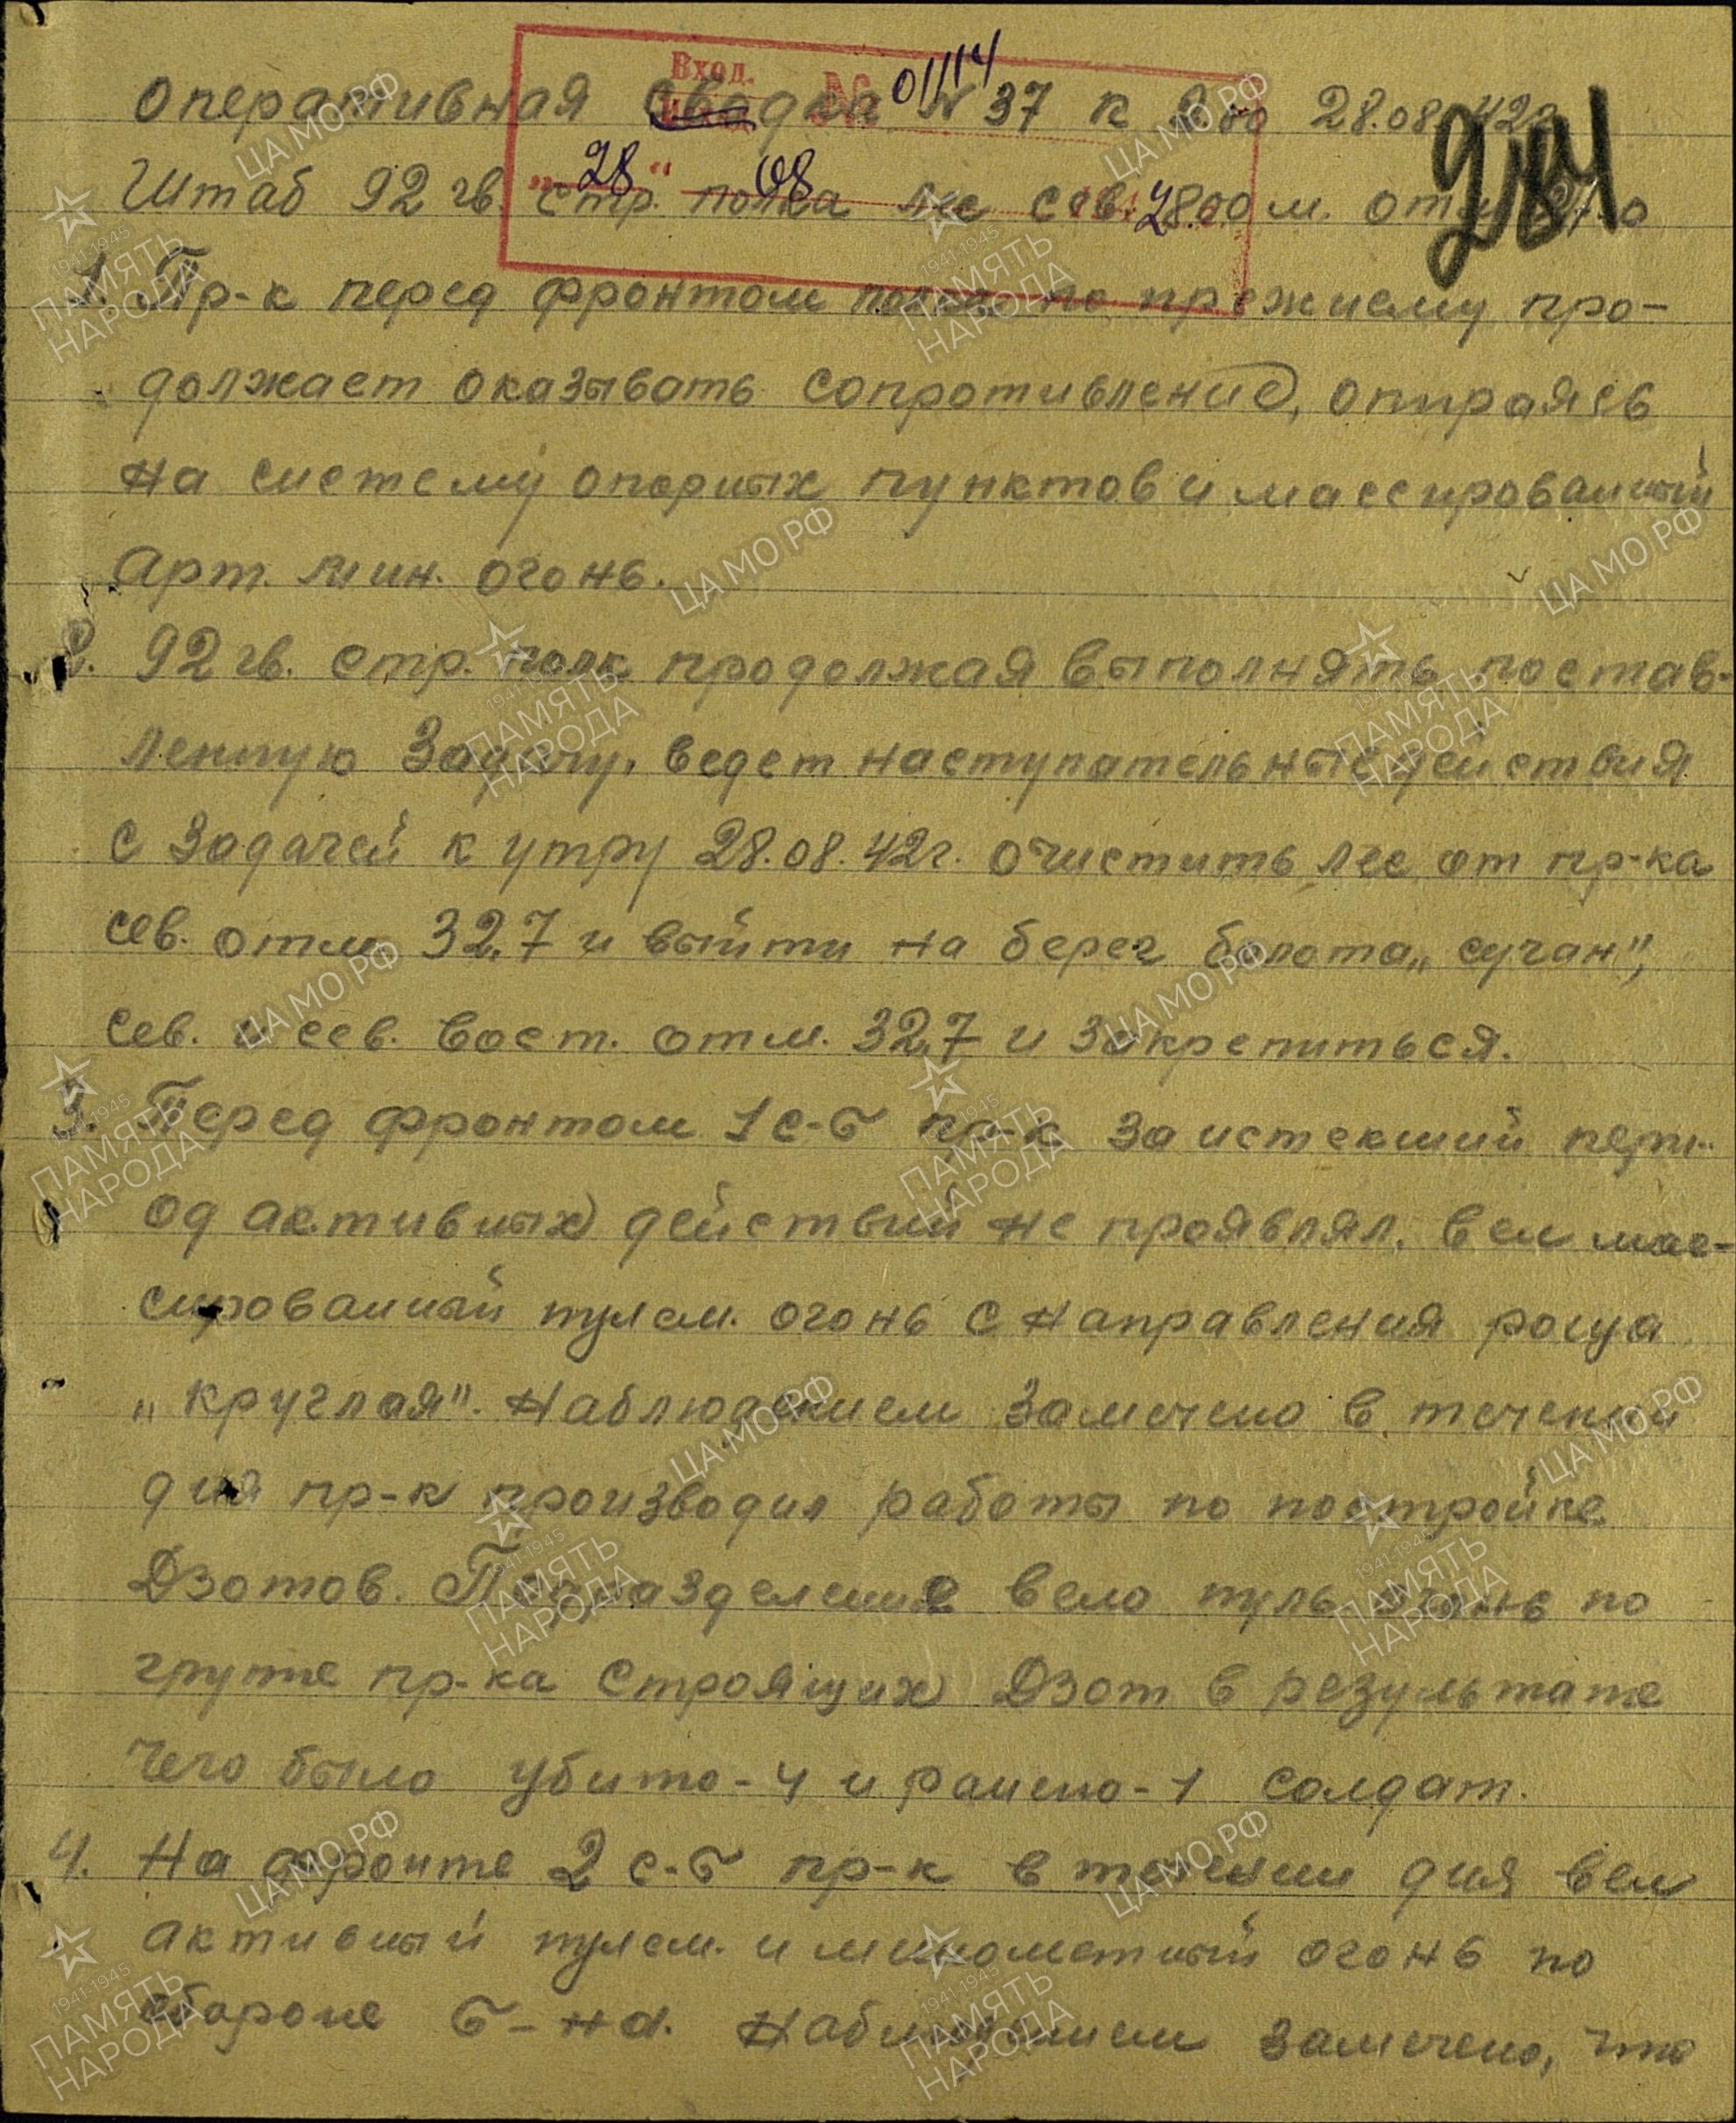 Вход. № 01114
"28" 08 1942 г.
284
Оперативная сводка № 37 к 28.08.42г.
Штаб 92 гв. стр. полка лес сев. 800 м. отм.
1. Пр-к перед фронтом полка по прежнему про-
должает оказывать сопротивление, опираясь
на систему опорных пунктов и массированный
арт. мин. огонь.
2. 92 гв. стр. полк продолжая выполнять постав-
ленную задачу, ведет наступательные действия
с задачей к утру 28.08.42г. очистить лес от пр-ка
сев. отм. 32,7 и выйти на берег болота „сучан",
сев. и сев. вост. отм. 32,7 и закрепиться.
3. Перед фронтом 1 с-б пр-к за истекший пери-
од активных действий не проявлял. вел мас-
сированный пулем. огонь с направления роща
„круглая". Наблюдением замечено в течении
дня пр-к производил работы по постройке
Дзотов. Подразделение вело пуль огонь по
группе пр-ка строящих Дзот в результате
чего было убито - 4 и ранено - 1 солдат.
4. На фронте 2 с-б пр-к в течении дня вел
активный пулем. и минометный огонь по
обороне б-на. Наблюдением замечено, что
ЦА МО РФ
1941-1945
ПАМЯТЬ
НАРОДА